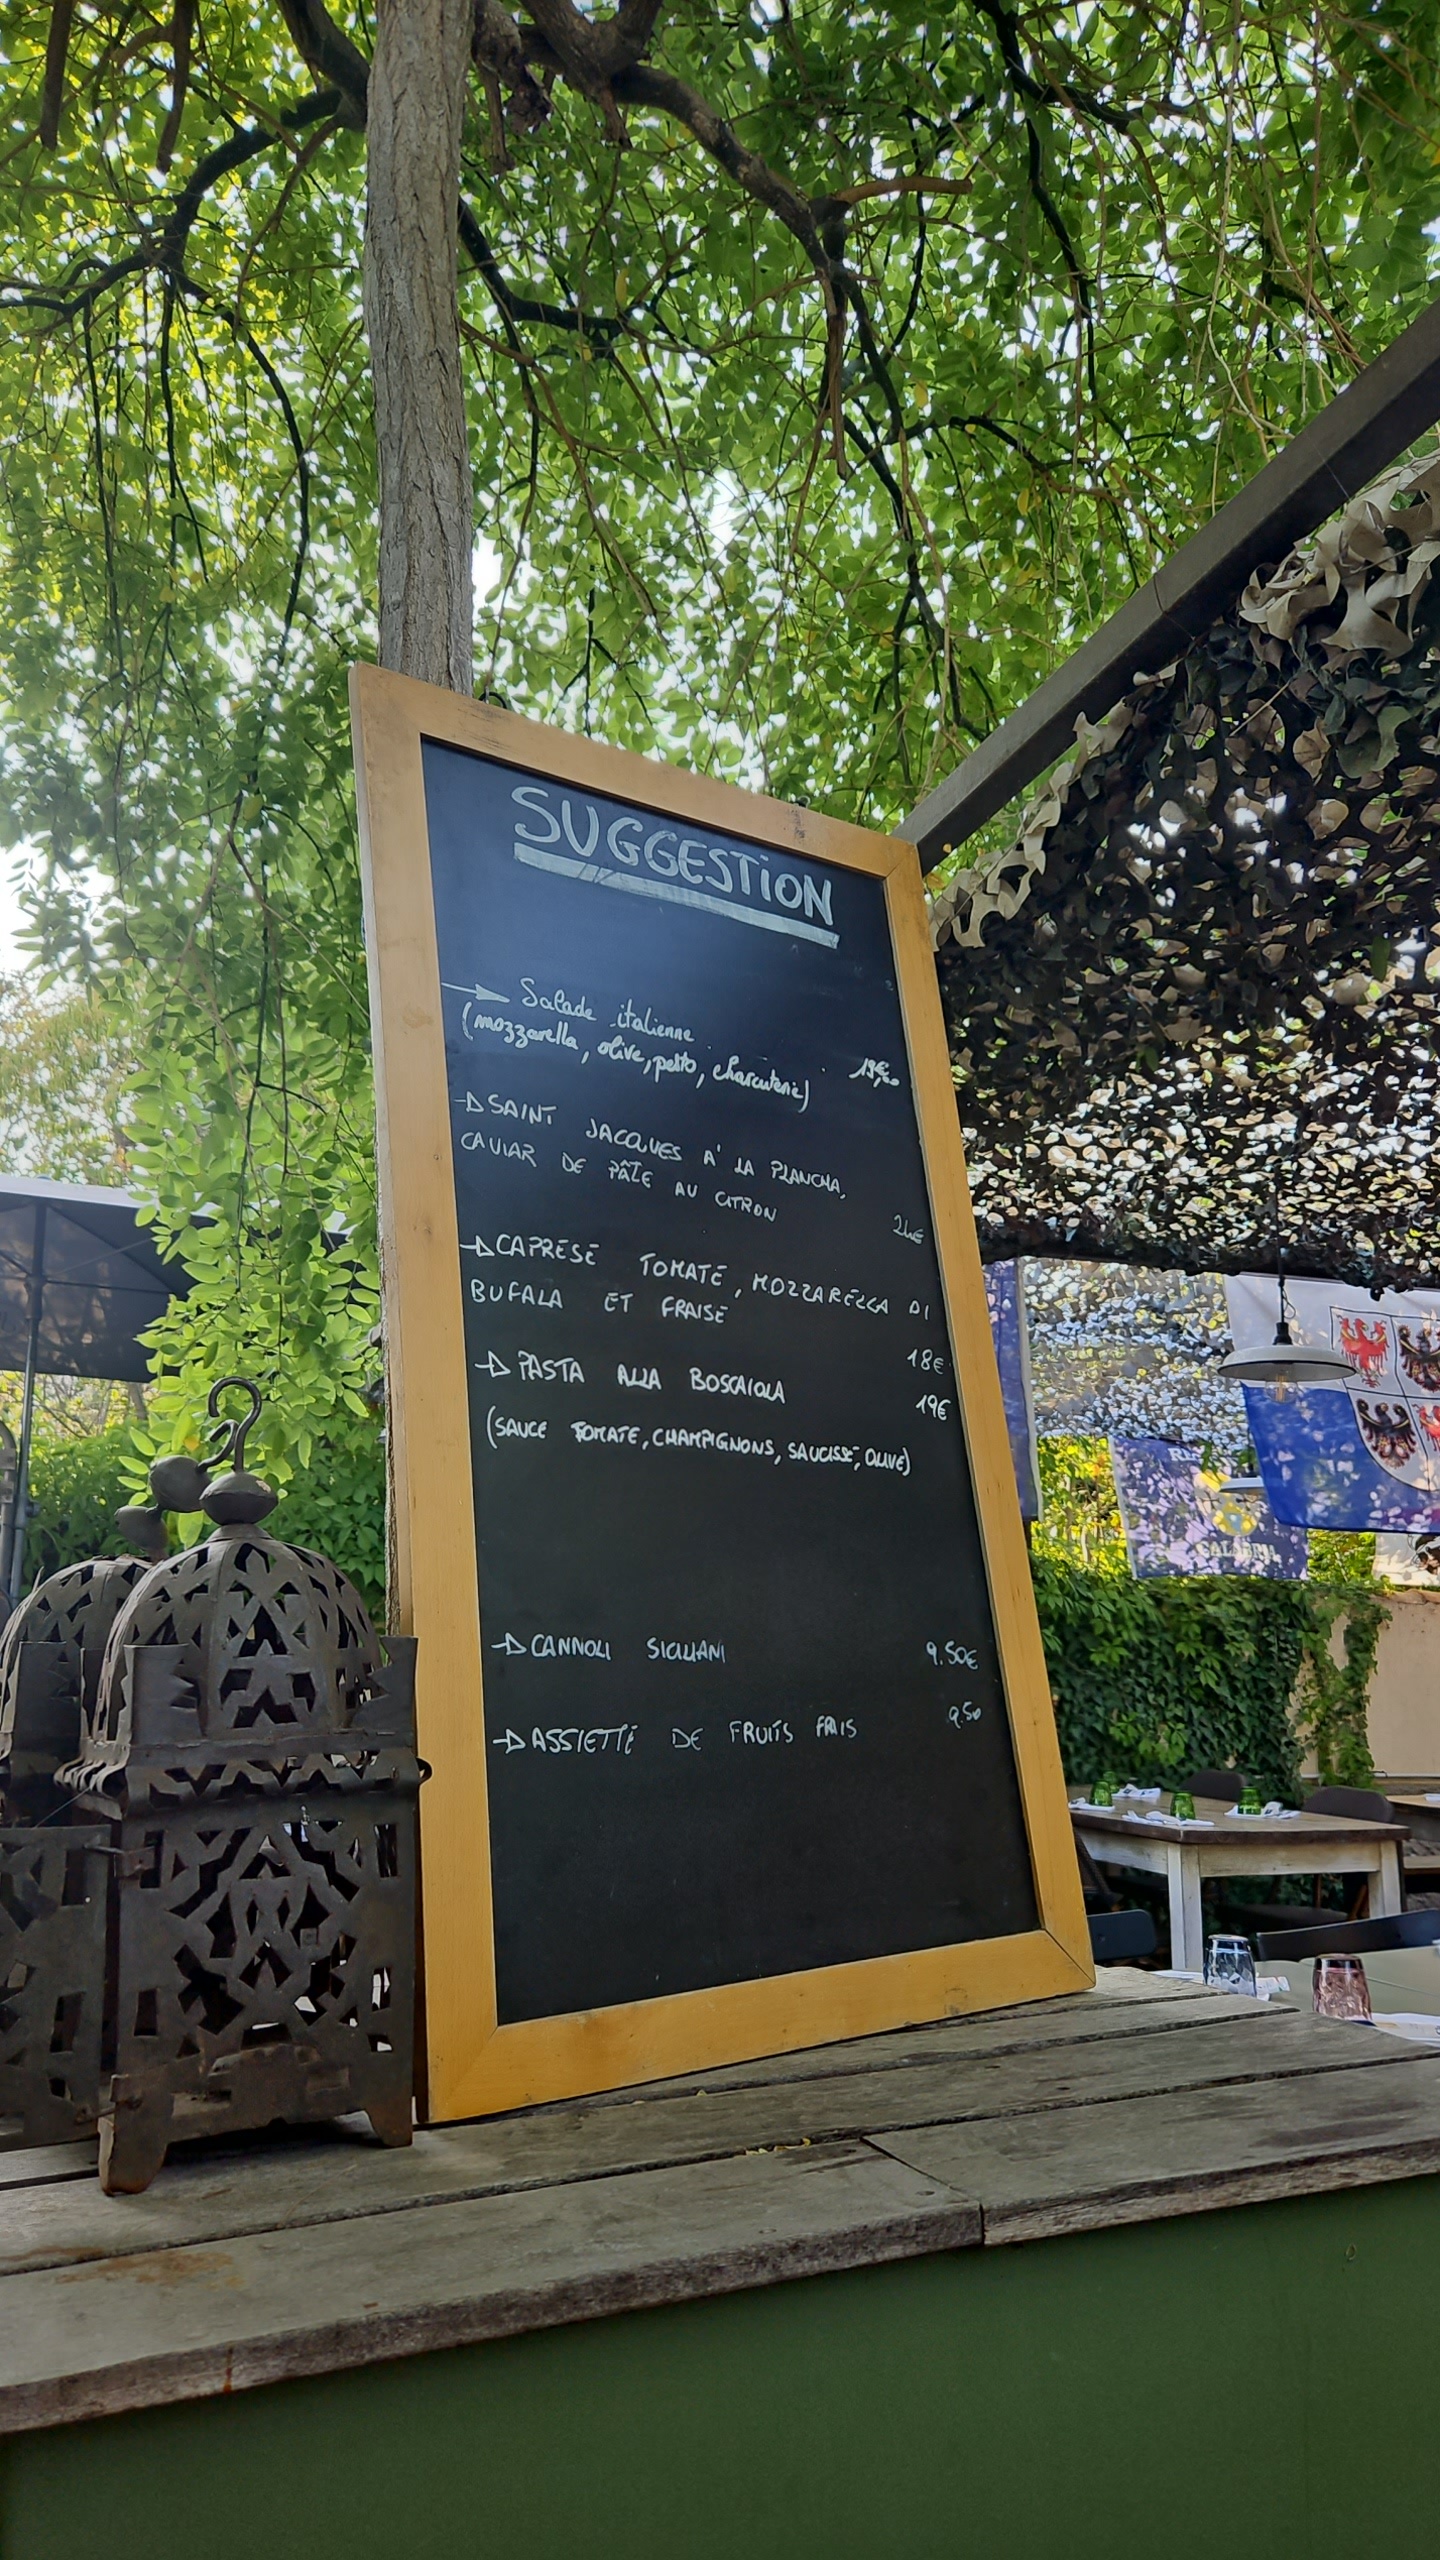 SUGGESTION
Salade italienne
(mozzarella, olive, pesto, charcuterie)
SAINT JACQUES A' LA PLANCHA,
CAVIAR DE PÂTE AU CITRON
24€
CAPRESE TOMATE, MOZZARELLA DI
BUFALA ET FRAISE
18€
PASTA ALLA BOSCAIOLA 19€
(SAUCE TOMATE, CHAMPIGNONS, SAUCISSE, OLIVE)
CANNOLI SICILIANI 9.50€
ASSIETTE DE FRUITS FRAIS 9.50
CALABRIA